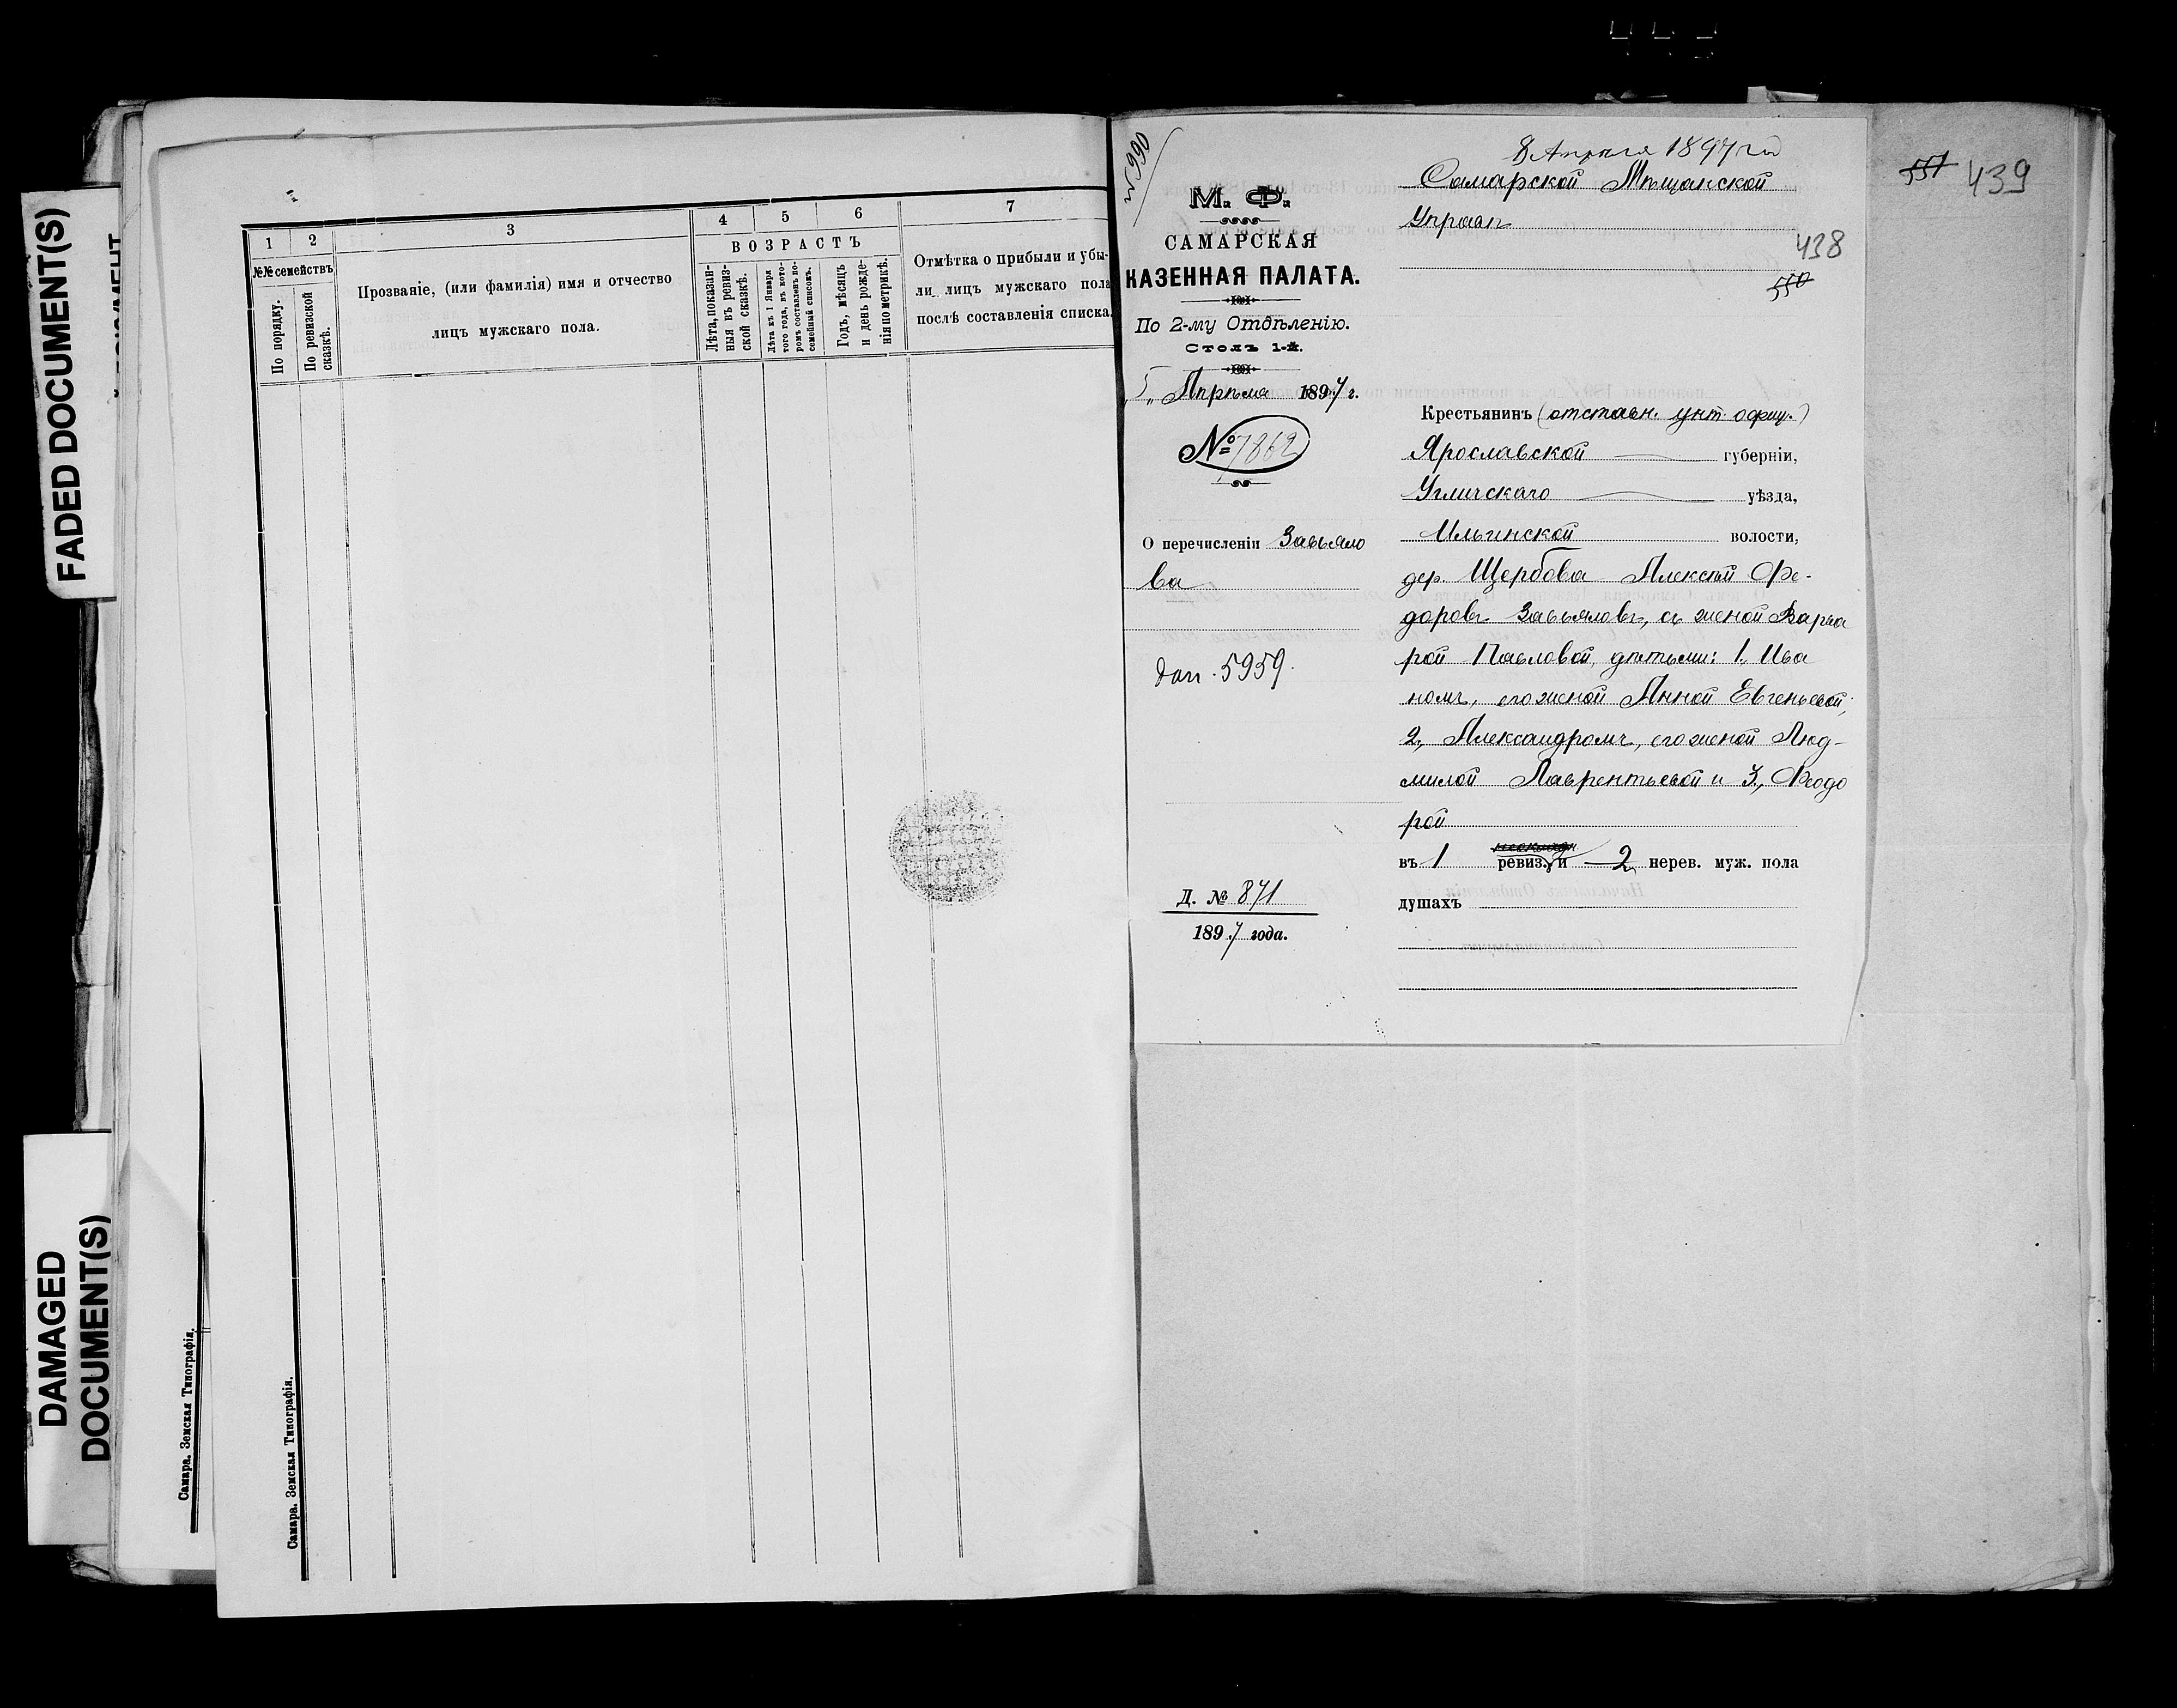 FADED DOCUMENT(S)
DAMAGED
DOCUMENT(S)
Самара. Земская Типографія.
Самара. Земская Типографія.
1 2 3 4 5 6 7
№№ семействъ
По порядку.
По ревизской сказкѣ.
Прозваніе, (или фамилія) имя и отчество
лицъ мужскаго пола.
ВОЗРАСТЪ
Лѣта, показан-
ныя въ ревиз-
ской сказкѣ.
Лѣта къ 1 Января
того года, въ кото-
ромъ составленъ по-
семейный списокъ.
Годъ, мѣсяцъ
и день рожде-
нія по метрикѣ.
Отмѣтка о прибыли и убы-
ли лицъ мужскаго пола
послѣ составленія списка.
М. Ф.
САМАРСКАЯ
КАЗЕННАЯ ПАЛАТА.
По 2-му Отдѣленію.
Столъ 1-й.
„5„ Апрѣля 1897 г.
№ 7862
О перечисленіи Завьяло
ва
5959.
Д. № 871
1897 года.
8 Апрѣля 1897 год
Самарской Мѣщанской
Управѣ
438
550
551 439
Крестьянинъ (отставн. унт. офиц.)
Ярославской губерніи,
Угличскаго уѣзда,
Ильинской волости,
дер. Щербова Алексѣй Фе-
доровъ Завьяловъ, съ женой Варва
рой Павловой, дѣтьми: 1, Ива
номъ, его женой Анной Евгеньевой;
2, Александромъ, его женой Люд-
милой Лаврентьевой и 3, Феодо
рой
въ 1 ревиз. и 2 нерев. муж. пола
душахъ